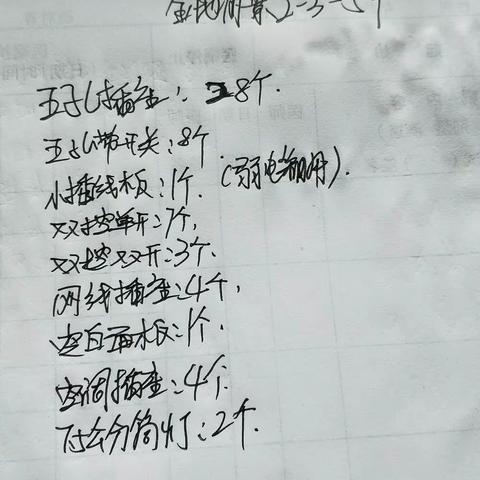 金地府景2-3-5个
五孔插座:28个.
五孔带开关:8个
小插线板:1个.(弱电箱用).
双控单开:7个,
双控双开:3个.
网线插座:4个,
空白面板:1个.
空调插座:4个.
75公分筒灯:2个.